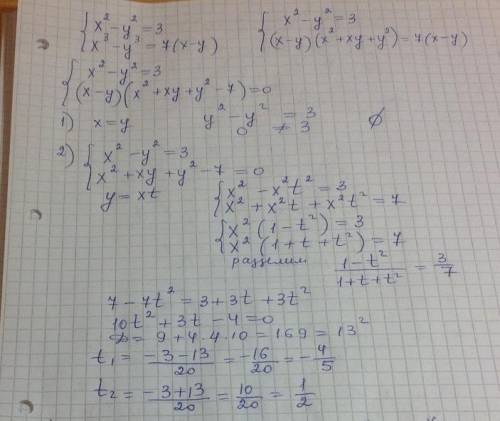 { x² - y² = 3
x³ - y³ = 7(x-y)
{ x² - y² = 3
(x-y)(x² + xy + y²) = 7(x-y)
{ x² - y² = 3
(x-y)(x² + xy + y² - 7) = 0
1) x = y y² - y² = 3
0 ≠ 3 ∅
2) { x² - y² = 3
x² + xy + y² - 7 = 0
y = xt
{ x² - x²t² = 3
x² + x²t + x²t² = 7
{ x²(1 - t²) = 3
x²(1 + t + t²) = 7
разделим (1 - t²)/(1 + t + t²) = 3/7
7 - 7t² = 3 + 3t + 3t²
10t² + 3t - 4 = 0
D = 9 + 4·4·10 = 169 = 13²
t₁ = (-3 - 13)/20 = -16/20 = -4/5
t₂ = (-3 + 13)/20 = 10/20 = 1/2